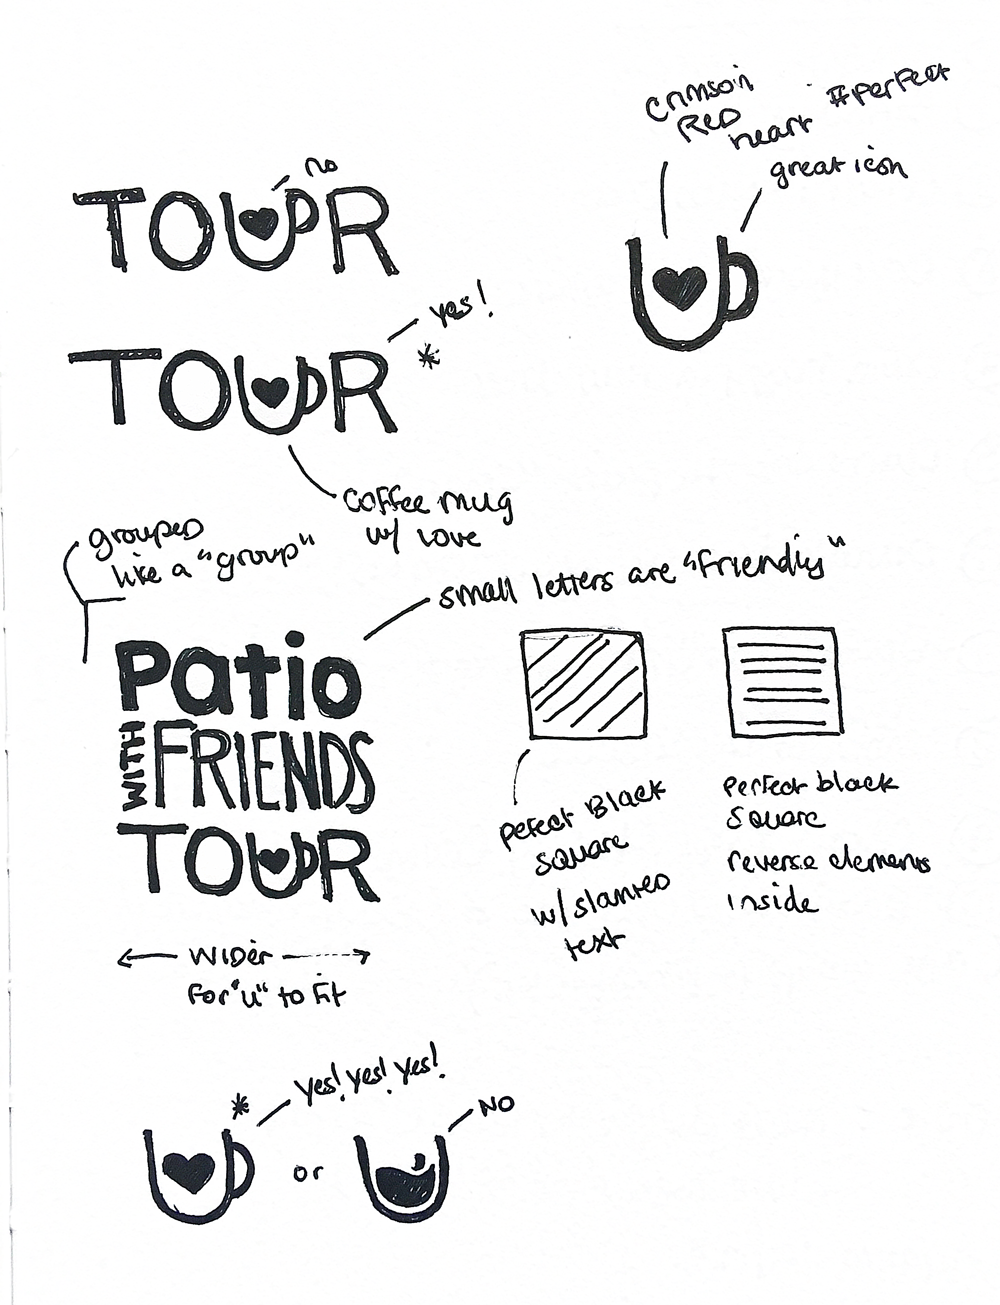 crimson
RED
heart
#perfect
great icon
no
TOUR
yes!
*
TOUR
coffee mug
w/ love
grouped
like a "group"
small letters are "friendly"
Patio
WITH
FRIENDS
TOUR
WIDer
For "u" to fit
pefect Black
square
w/ slanted
text
perfect black
square
reverse elements
inside
*
yes! yes! yes!
or
NO